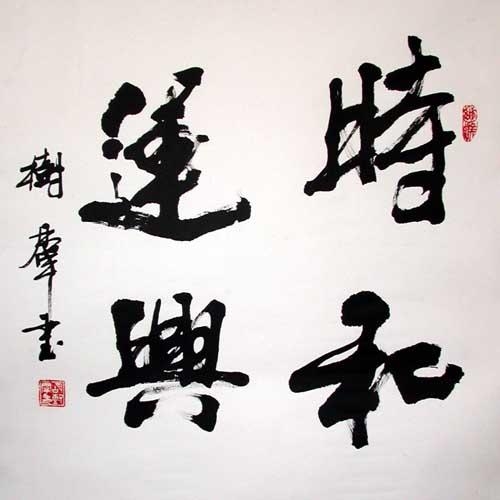 時和
運興
樹羣書